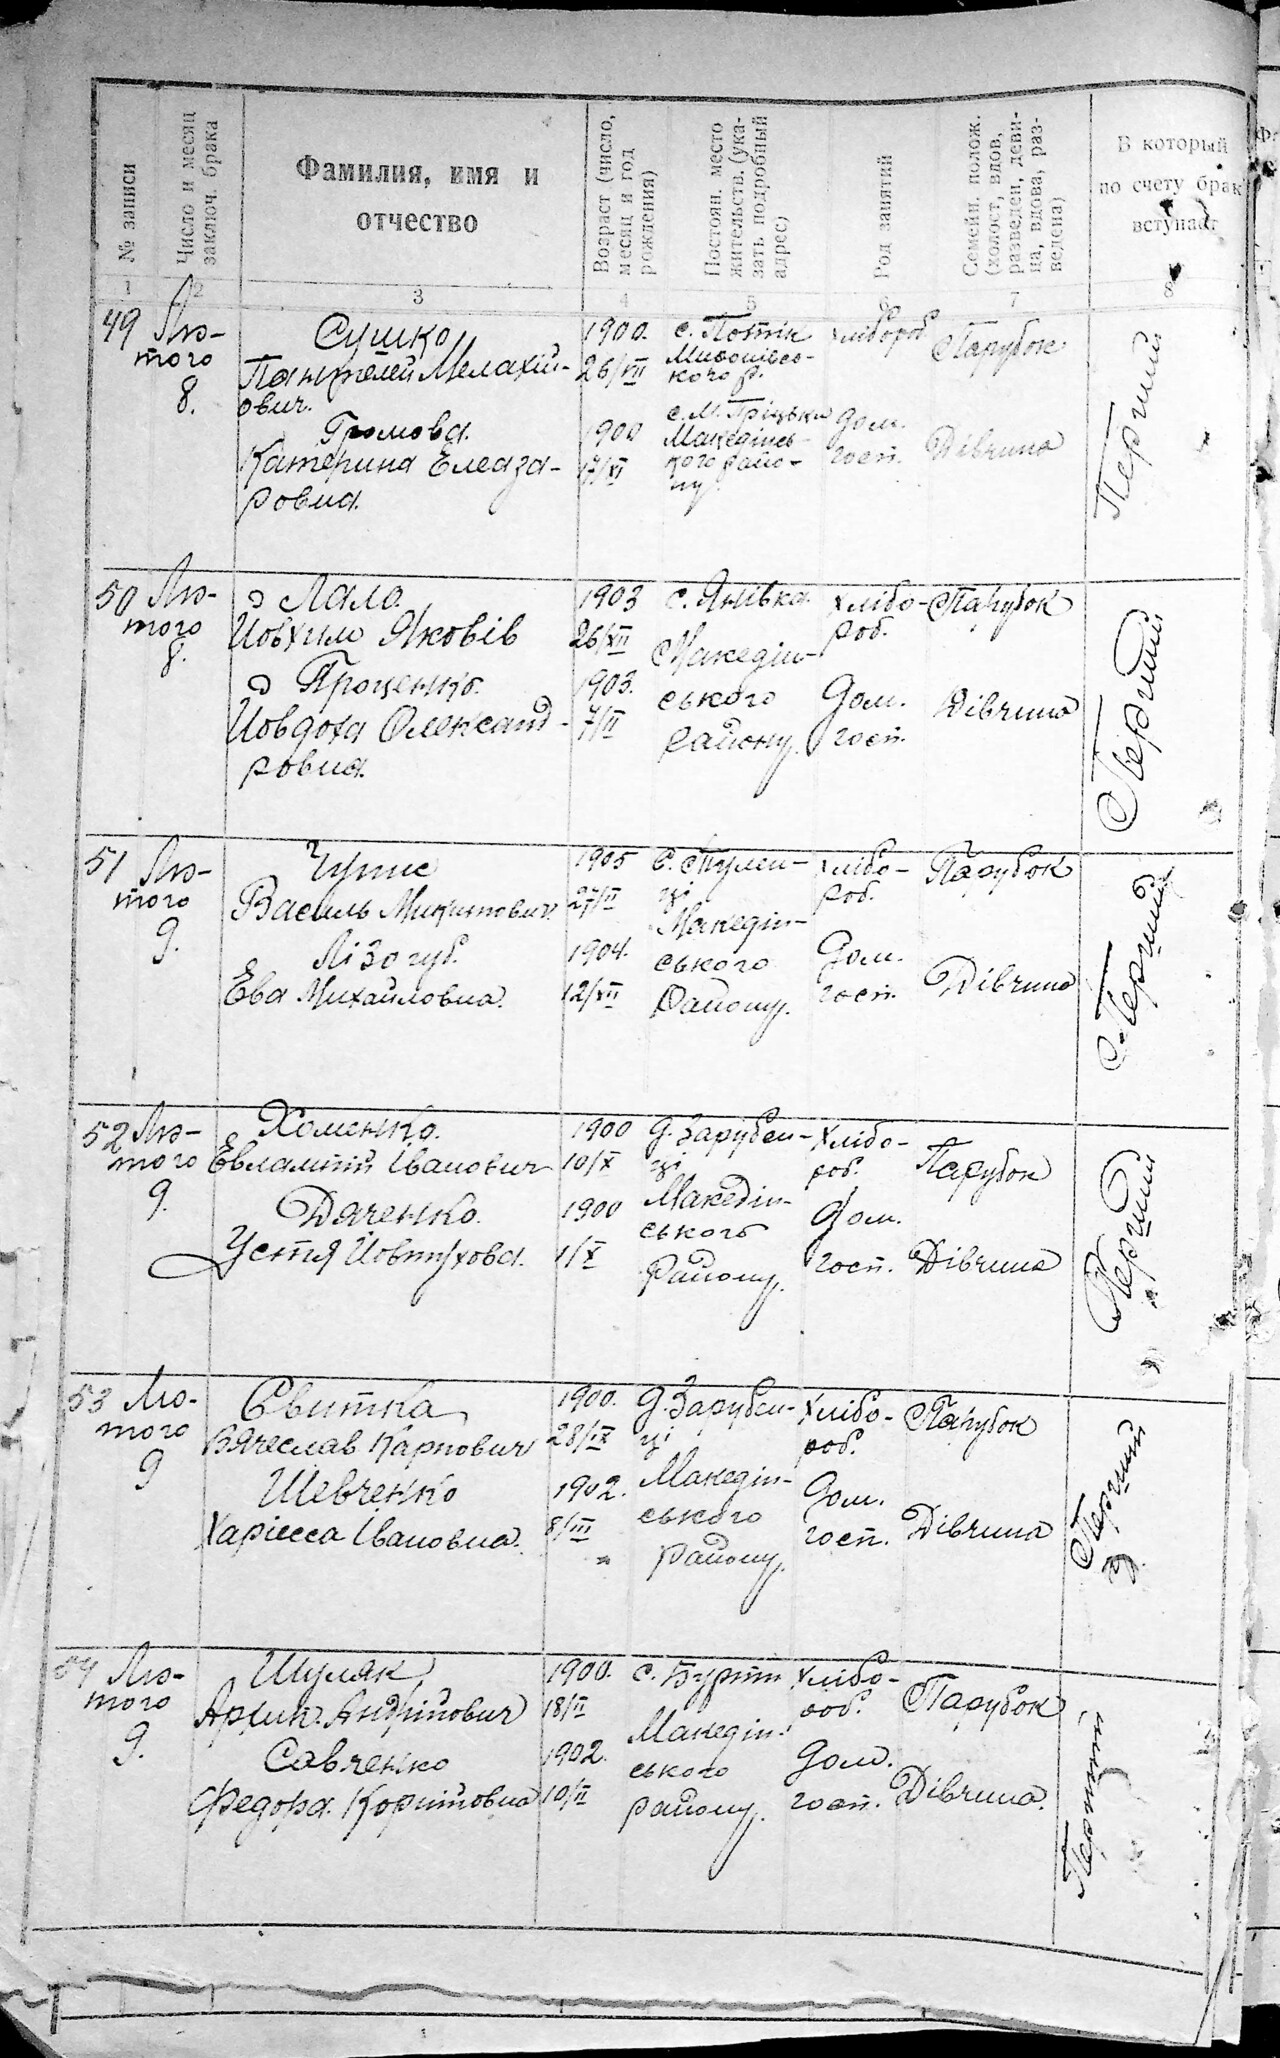 № записи
Число и месяц
заключ. брака
Фамилия, имя и
отчество
Возраст (число,
месяц и год
рождения)
Постоян. место
жительств. (ука-
зать подробный
адрес)
Род занятий
Семейн. полож.
(холост, вдов,
разведен, деви-
ца, вдова, раз-
ведена)
В который
по счету брак
вступает
1 2 3 4 5 6 7 8
49 Лю-
того
8.
Сушко
Пантелей Мелахій-
ович.
Громова
Катерина Елеаза-
ровна.
1900.
26/VII
1900
17/XI
с. Потік
кого р.
с. М. Пріцьки
Македінсь-
кого райо-
ну.
хлібороб
дом.
госп.
Парубок
Дівчина
Перший
50 Лю-
того
8.
Лало
Йовхим Яковів
Проценко
Йовдоха Олександ-
ровна.
1903
26/XII
1903.
7/II
с. Янівка
Македін-
ського
району.
хлібо-
роб.
Дом.
госп.
Парубок
Дівчина
Перший
51 Лю-
того
9.
Василь Микитович
Лізогуб.
Ева Михайловна.
1905
27/II
1904.
12/XII
с. Тулен-
ці
Македін-
ського
Району.
хлібо-
роб.
Дом.
госп.
Парубок
Дівчина
Перший
52 Лю-
того
9.
Хоменко.
Евлампій Іванович
Дяченко.
Устя Йовтухова.
1900
10/X
1900
1/X
д. Зарубен-
ці
Македін-
ського
Району.
Хлібо-
роб.
Дом.
госп.
Парубок
Дівчина
Перший
53 Лю-
того
9
Свитка
Вячеслав Карпович
Шевченко
Харісса Івановна.
1900.
28/IX
1902.
8/III
д. Зарубен-
ці
Македін-
ського
Району.
Хлібо-
роб.
Дом.
госп.
Парубок
Дівчина
Перший
54 Лю-
того
9.
Шуляк
Архип Андрійович
Савченко
Федора Корнійовна
1900.
18/II
1902.
10/II
с. Бурти
Македін-
ського
району.
Хлібо-
роб.
Дом.
госп.
Парубок
Дівчина.
Перший